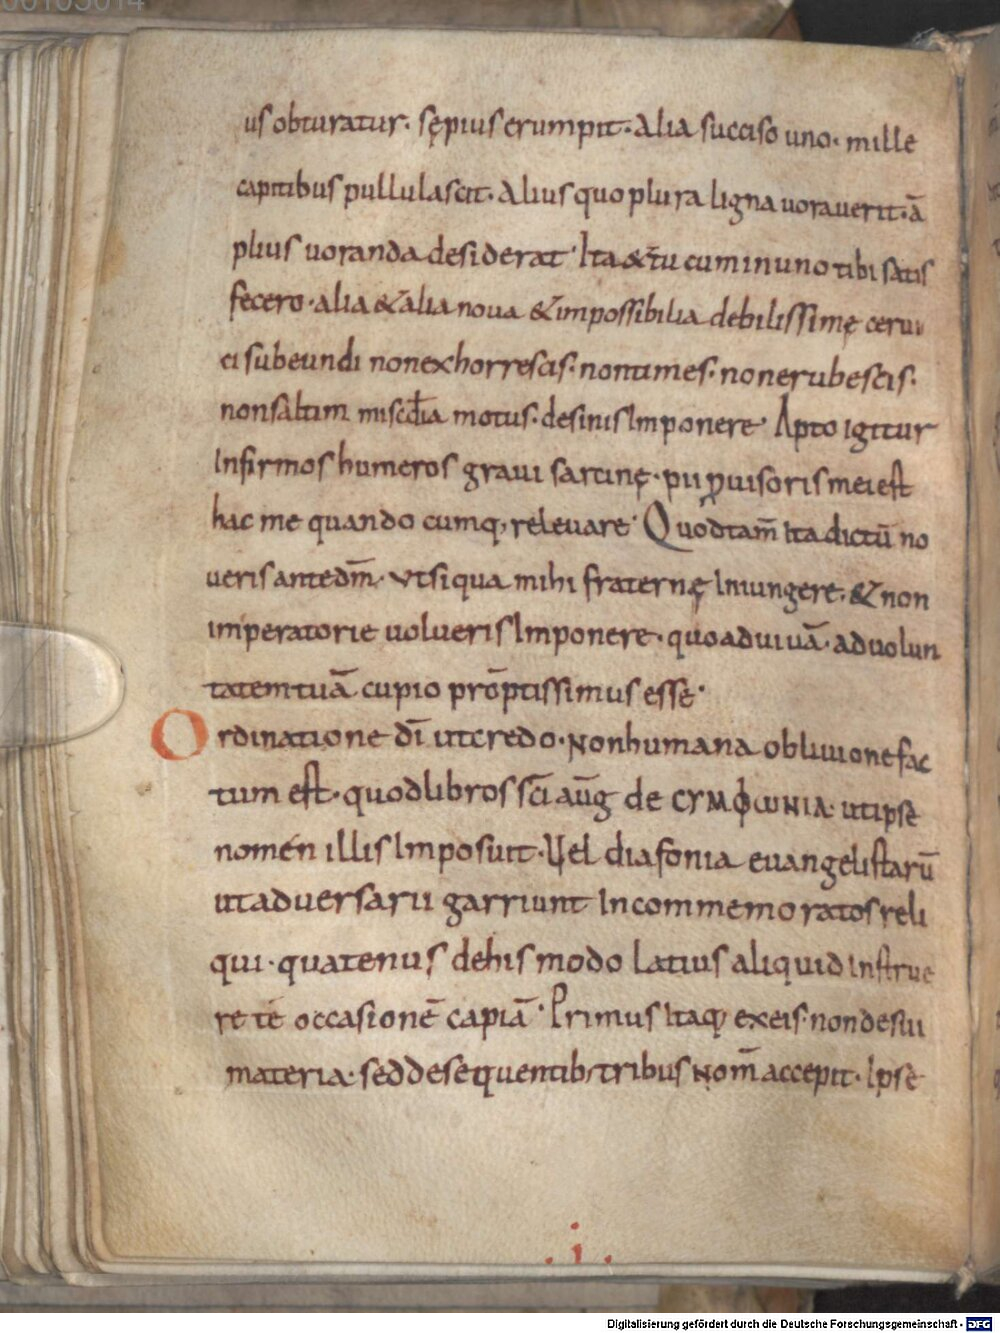 00105014
us obturatur· sępius erumpit· Alia succiso uno· mille
capitibus pullulascit· Alius quo plura ligna uorauerit· ā
plius uoranda desiderat· Ita & tu cum in uno tibi satis
fecero· alia & alia noua & impossibilia debilissimę cerui
ci subeundi non exhorrescis· non times· non erubescis·
non saltim miscđia motus· desinis Imponere· Apto igitur
Infirmos humeros graui sarcinę· pii ꝓuisoris mei est
hac me quando cumq; releuare· Quod tam̄ Ita dictū no
ueris ante dm̄· Vt si qua mihi fraternę Iniungere· & non
imperatorie uolueris Imponere· quoad uiuā· ad uolun
tatem tuā cupio prōptissimus esse·
Ordinatione dī ut credo· Non humana obliuione fac
tum est· quod libros scī aūg de CYMΦωNIA· ut ipse
nomen illis Imposuit· Vel diafonia euangelistarū
ut aduersarii garriunt In commemoratos reli
qui· quatenus de his modo latius aliquid instrue
re te occasionē capiā· Primus Itaq; ex eis· non de sui
materia· sed de sequentib; tribus Nom̄ accepit· Ipse
· i ·
Digitalisierung gefördert durch die Deutsche Forschungsgemeinschaft - DFG